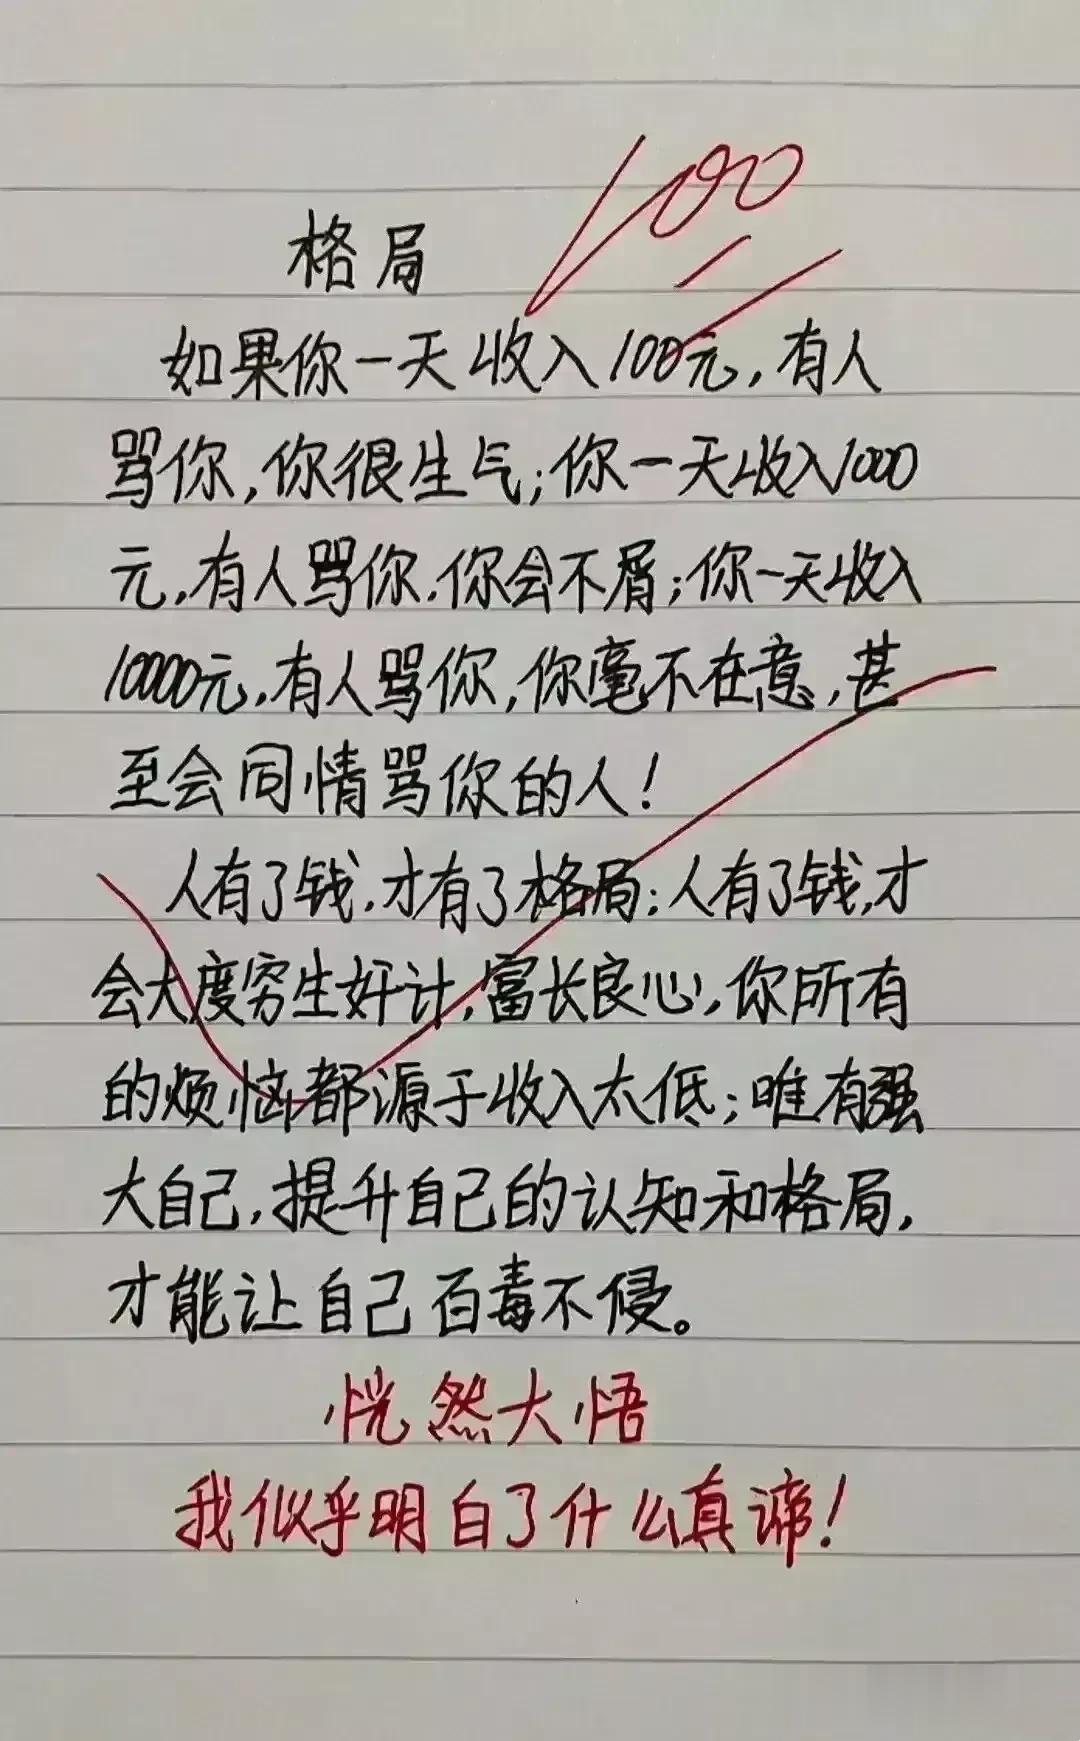 100
格局
如果你一天收入100元,有人
骂你,你很生气;你一天收入1000
元,有人骂你,你会不屑;你一天收入
10000元,有人骂你,你毫不在意,甚
至会同情骂你的人!
人有了钱,才有了格局;人有了钱,才
会大度穷生奸计,富长良心,你所有
的烦恼都源于收入太低;唯有强
大自己,提升自己的认知和格局,
才能让自己百毒不侵。
恍然大悟
我似乎明白了什么真谛!